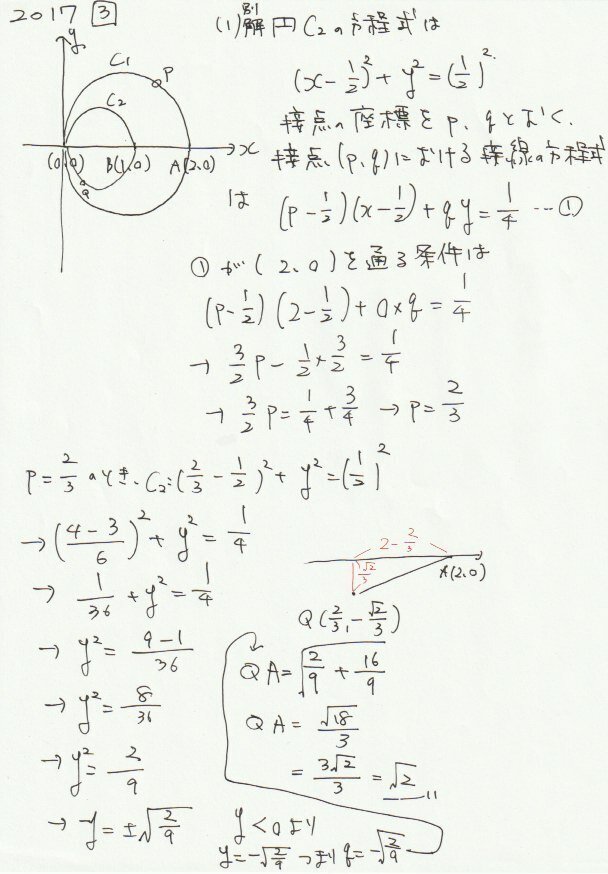 2017 3
(1) 別解 円C₂の方程式は
y
C₁
P
C₂
(0,0)
B(1,0)
A(2,0)
x
Q
(x-1/2)²+y²=(1/2)²
接点の座標をp、qとおく、
接点(p,q)における接線の方程式
は (p-1/2)(x-1/2)+qy=1/4 …①
①が(2,0)を通る条件は
(p-1/2)(2-1/2)+0×q=1/4
→ 3/2 p - 1/2×3/2 = 1/4
→ 3/2 p = 1/4+3/4 → p=2/3
p=2/3のとき、C₂:(2/3-1/2)²+y²=(1/2)²
→ ((4-3)/6)²+y²=1/4
→ 1/36+y²=1/4
→ y²=(9-1)/36
→ y²=8/36
→ y²=2/9
→ y=±√(2/9)
y<0より
y=-√(2/9) つまりq=-√(2/9)
2-2/3
√2/3
A(2,0)
Q(2/3,-√2/3)
QA=√(2/9+16/9)
QA=√18/3
=3√2/3=√2